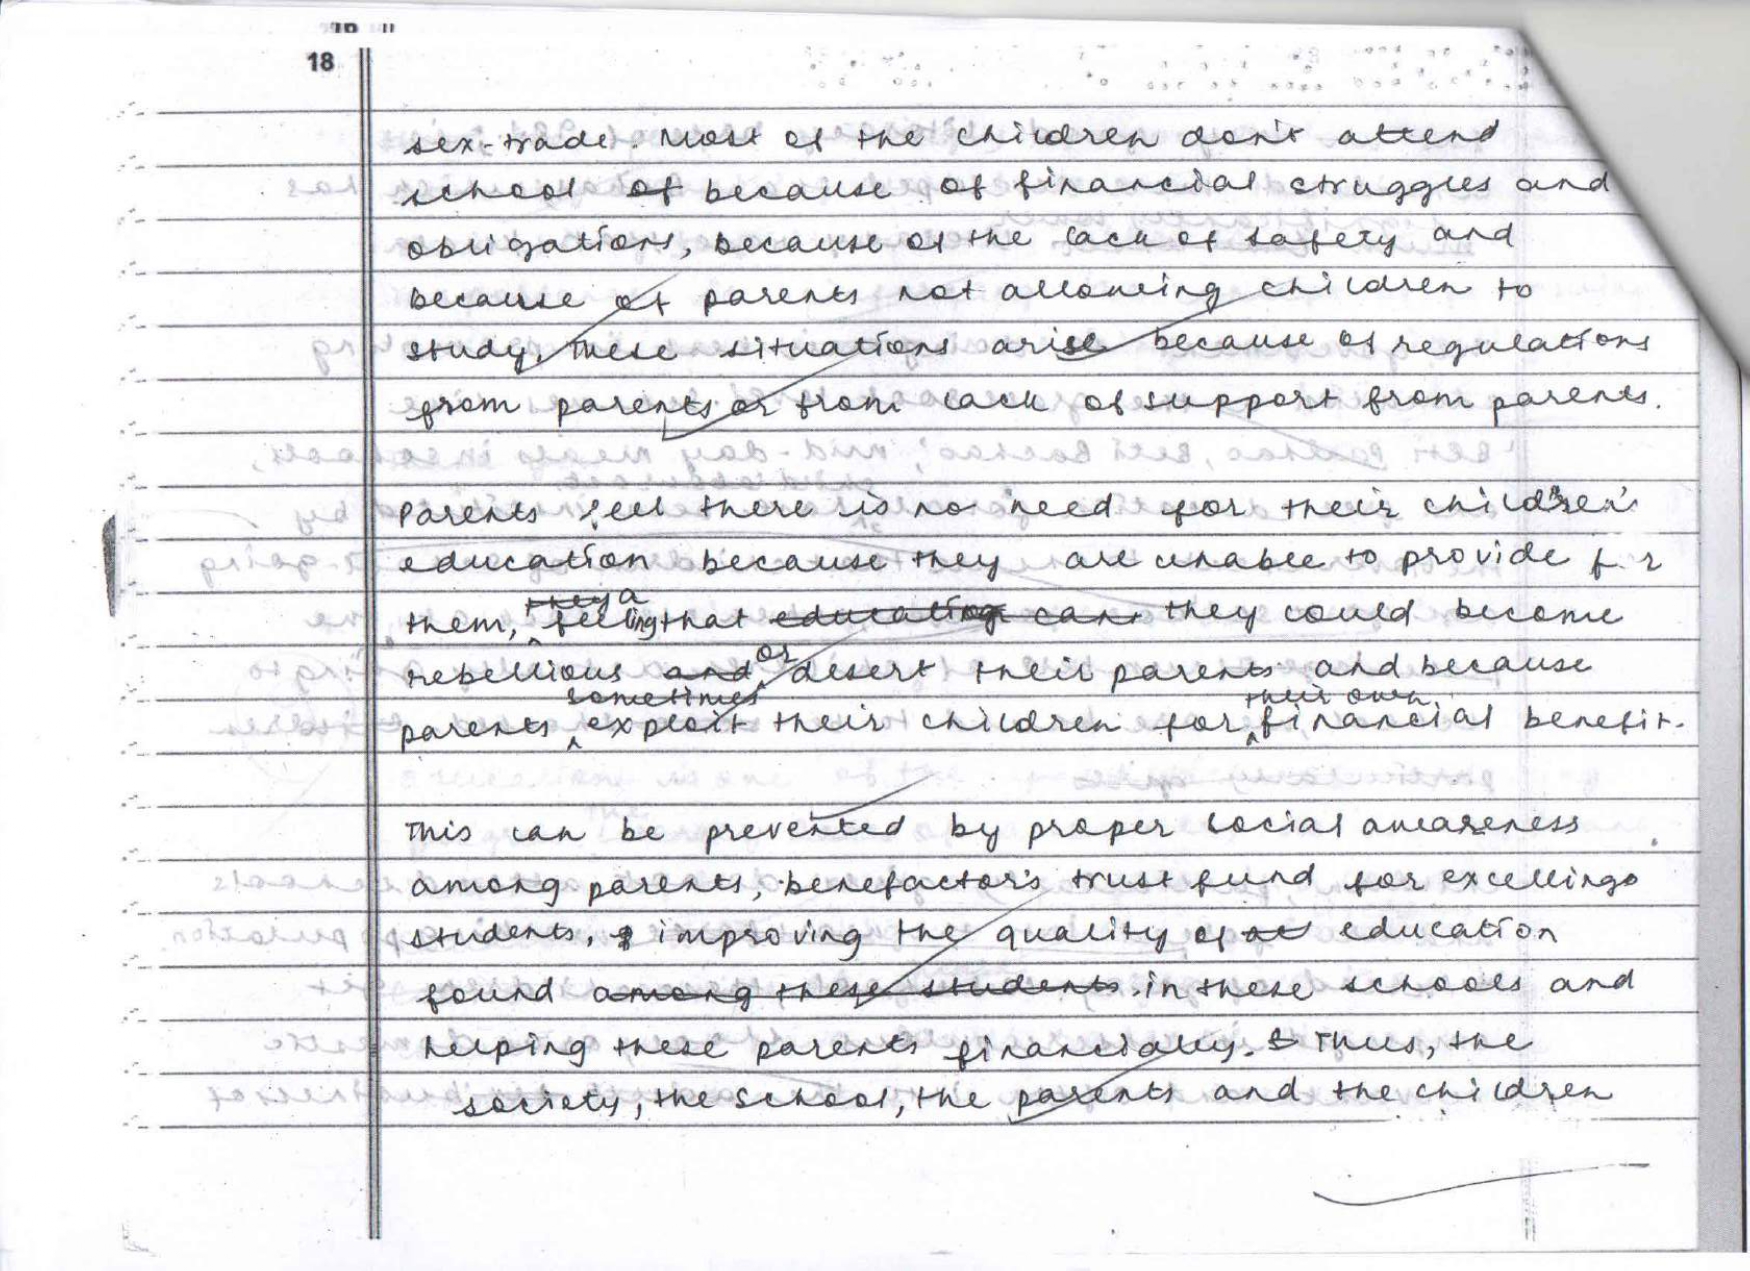 18
sex-trade. Most of the children don't attend
school of because of financial struggles and
obligations, because of the lack of safety and
because of parents not allowing children to
study. These situations arise because of regulations
from parents or from lack of support from parents.
Parents feel there is no need for their children's
education because they are unable to provide for
them, they a feeling that educating can they could become
rebellious and or desert their parents and because
parents sometimes exploit their children for their own financial benefit.
This can be prevented by proper social awareness
among parents, benefactor's trust fund for excelling
students, improving the quality of education
found among these students in these schools and
helping these parents financially. Thus, the
society, the school, the parents and the children